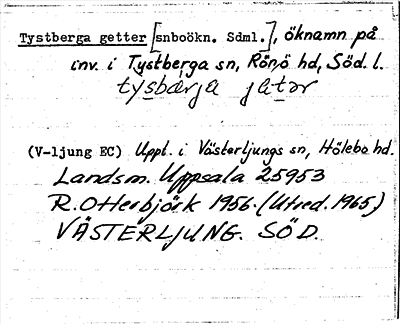 Tystberga getter [snboökn. Sdml.], öknamn på
inv. i Tystberga sn, Rönö hd, Söd. l.
tysbærja jætər
(V-ljung EC) Uppt. i Västerljungs sn, Hölebo hd.
Landsm. Uppsala 25953
R. Otterbjörk 1956. (Utred. 1965)
VÄSTERLJUNG. SÖD.